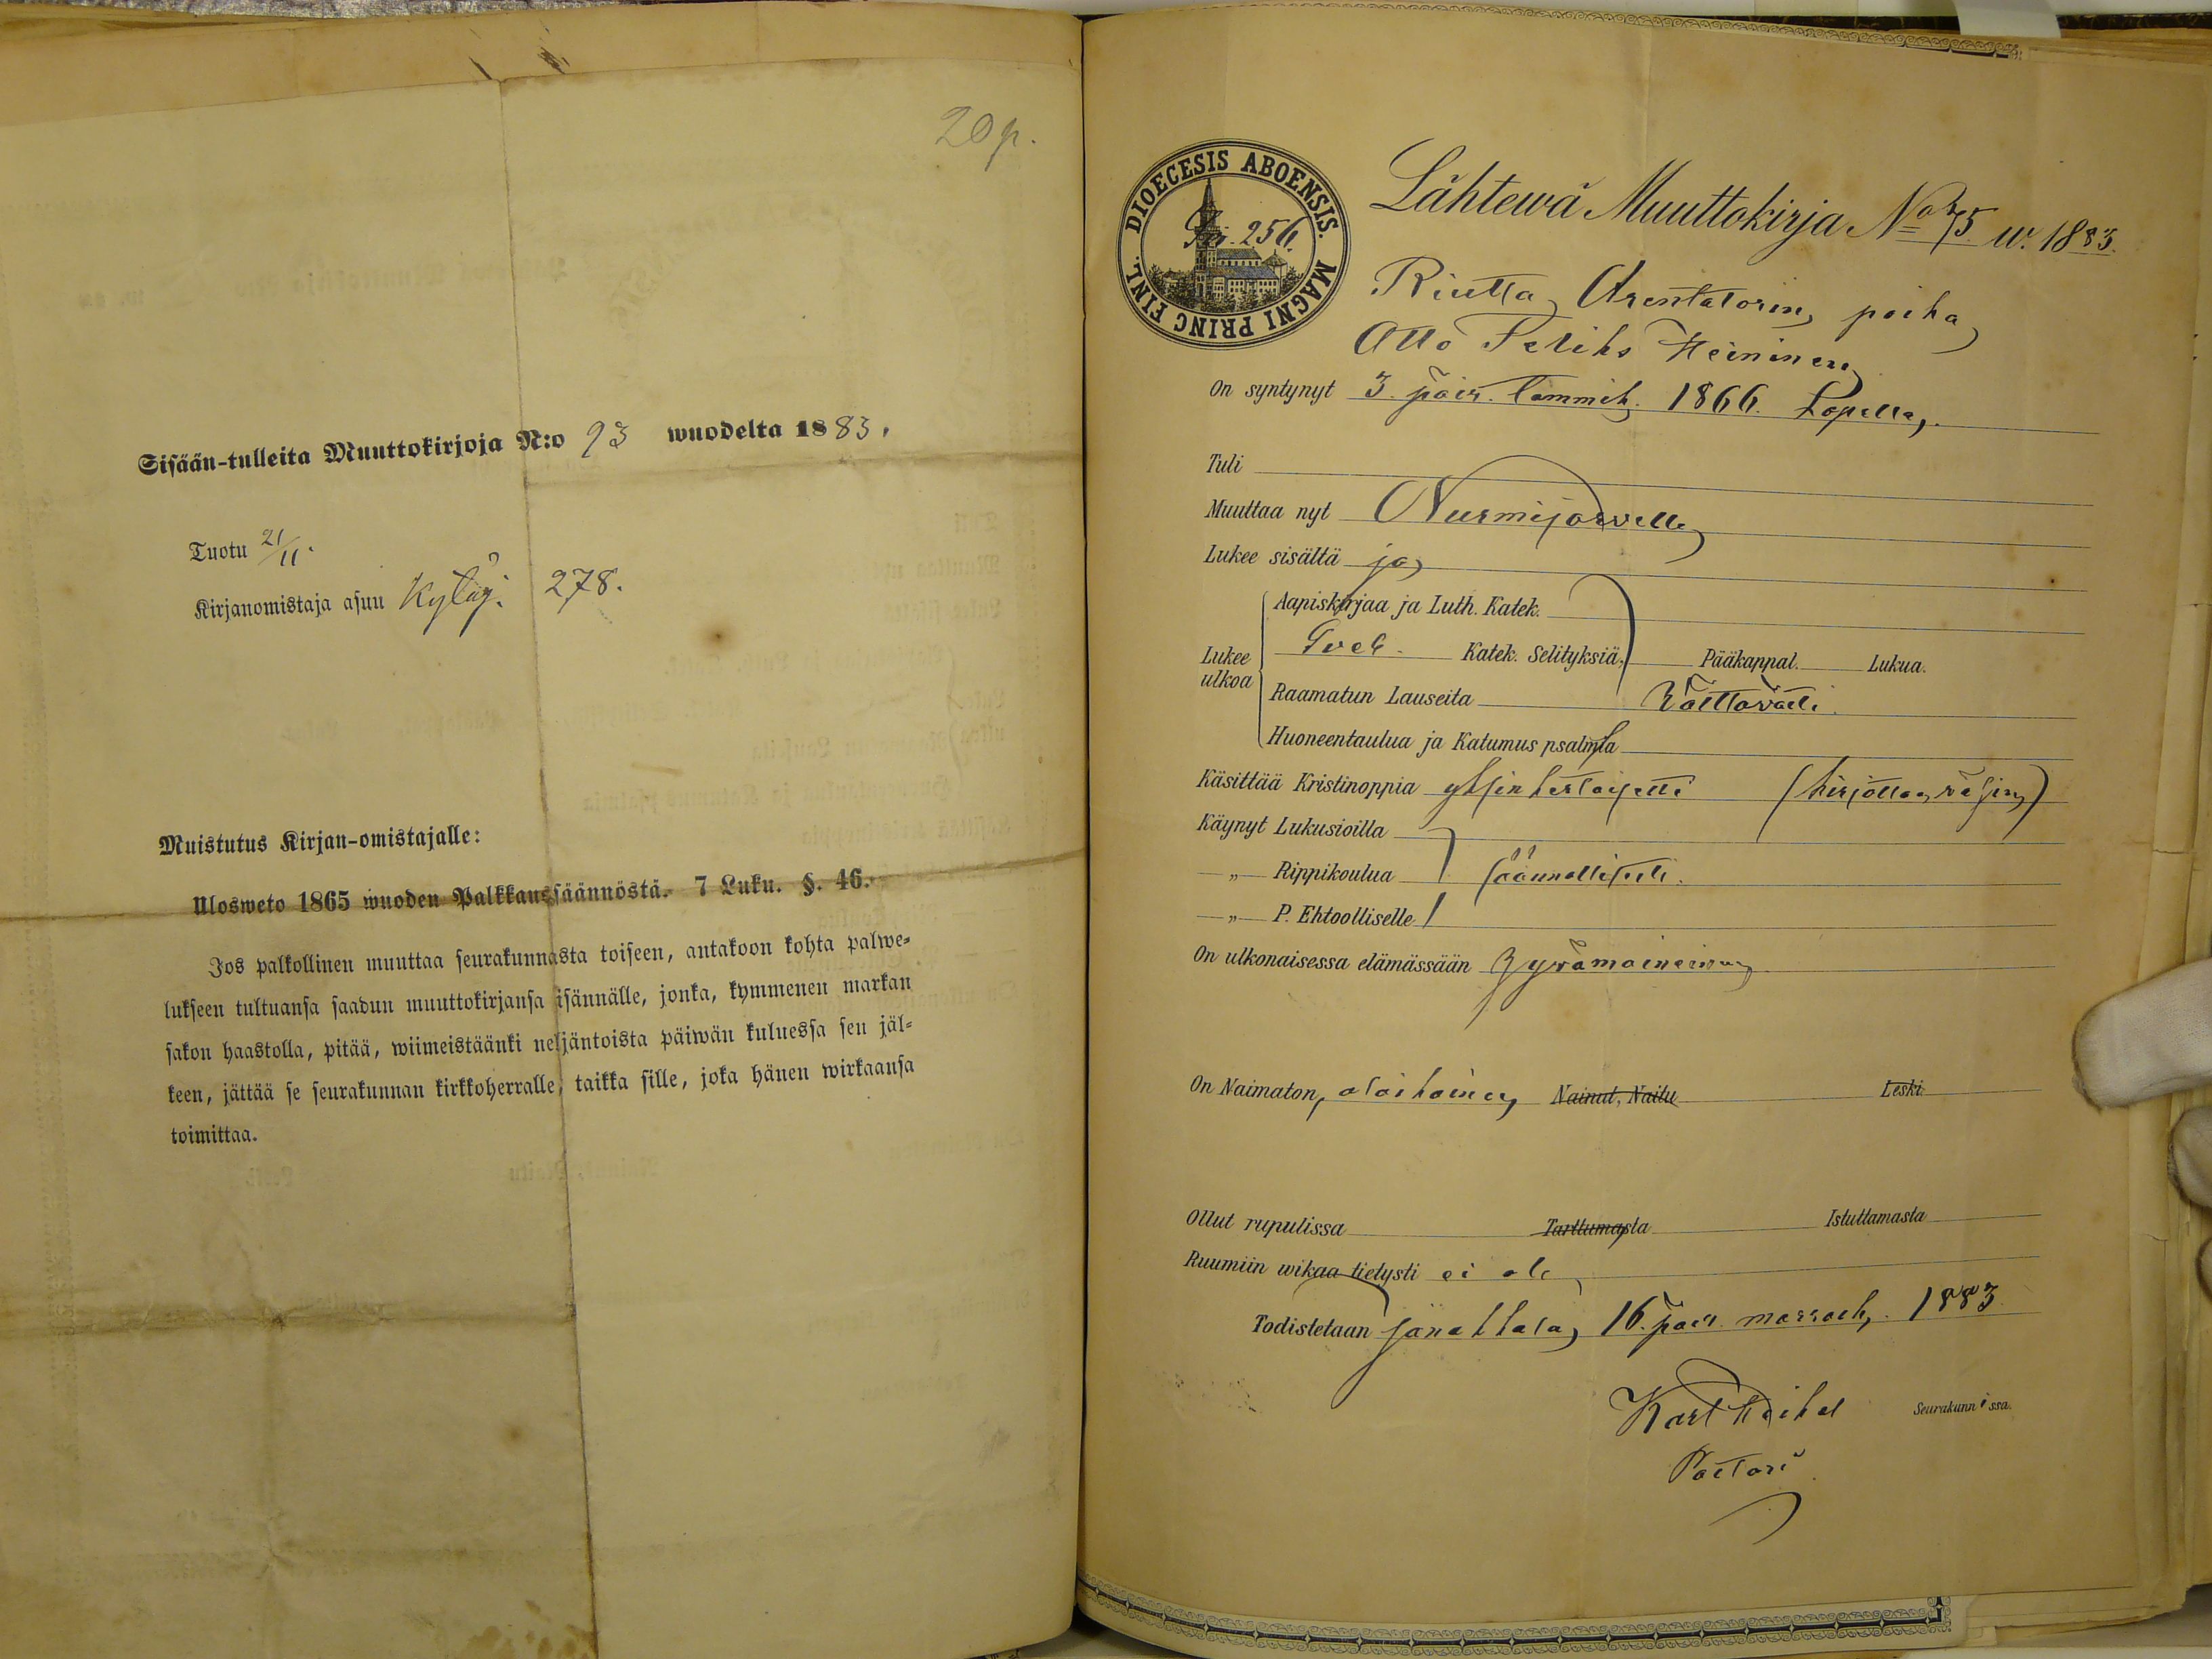 20 p.
Sisään-tulleita Muuttokirjoja N:o 93 wuodelta 1883.
Tuotu 21/11.
Kirjanomistaja asuu Kytäj. 278.
Muistutus Kirjan-omistajalle:
Ulosweto 1865 wuoden Palkkaussäännöstä. 7 Luku. §. 46.
Jos palkollinen muuttaa seurakunnasta toiseen, antakoon kohta palwe-
lukseen tultuansa saadun muuttokirjansa isännälle, jonka, kymmenen markan
sakon haastolla, pitää, wiimeistäänki neljäntoista päiwän kuluessa sen jäl-
keen, jättää se seurakunnan kirkkoherralle, taikka sille, joka hänen wirkaansa
toimittaa.
DIOECESIS ABOENSIS. MAGNI PRINC FINL.
256.
Lähtewä Muuttokirja No 75 w. 1883.
Arentatorin poika
Otto Feliks Heininen
On syntynyt 3. päiv. tammik. 1866. Lopella,
Tuli
Muuttaa nyt Nurmijärvelle
Lukee sisältä ja
Aapiskirjaa ja Luth. Katek.
Lukee ulkoa
Katek. Selityksiä, Pääkappal. Lukua.
Raamatun Lauseita välttävästi.
Huoneentaulua ja Katumus psalmia
Käsittää Kristinoppia yksinkertaisesti
Käynyt Lukusioilla
" Rippikoulua säännöllisesti.
" P. Ehtoolliselle
On ulkonaisessa elämässään hyvämaineinen
On Naimaton, alaikäinen, Nainut, Naitu Leski
Ollut rupulissa Tarttumasta Istuttamasta
Ruumiin wikaa tietysti ei ole
Todistetaan Janakkala, 16. päiv. marrask. 1883
Karl Seurakunnissa.
Pastori